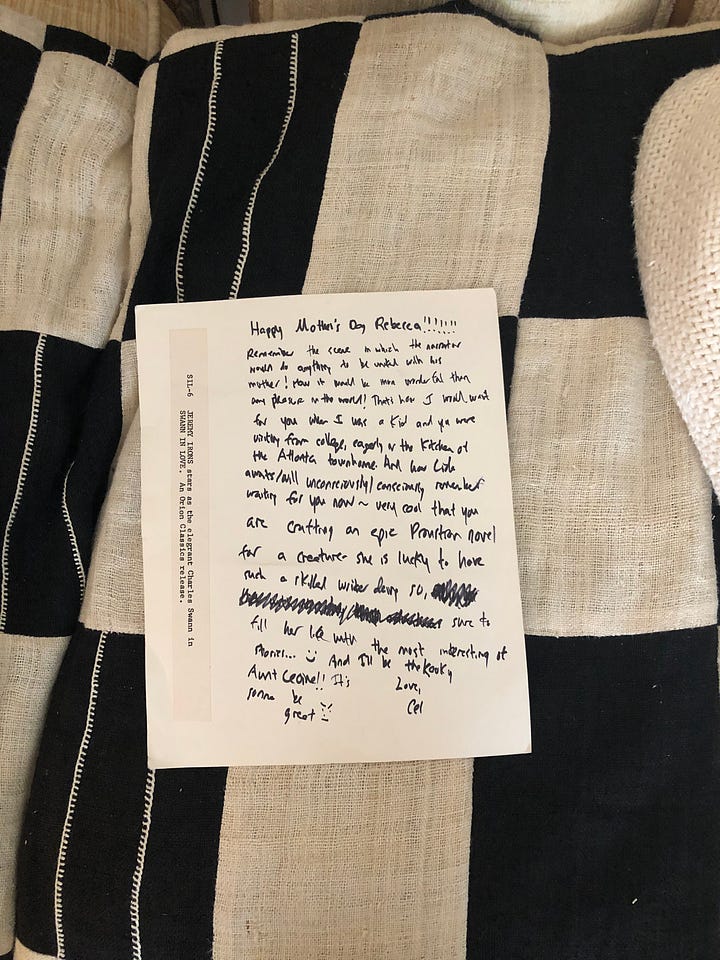 Happy Mother's Day Rebecca!!!!!!!
Remember the scene in which the narrator
would do anything to be united with his
mother! How it would be more wonderful than
any pleasure in the world! That's how I would wait
for you when I was a kid and you were
visiting from college, eagerly in the kitchen of
the Atlanta townhome. And how Lida
awaits/will unconsciously/consciously remember
waiting for you now ~ very cool that you
are crafting an epic Proustian novel
for a creature she is lucky to have
such a skilled writer doing so,
sure to
fill her life with the most interesting of
stories... And I'll be the kooky
Aunt Celine!! It's
gonna be
great
Love,
Cel
S1L-6 JEREMY IRONS stars as the elegrant Charles Swann in
SWANN IN LOVE. An Orion Classics release.